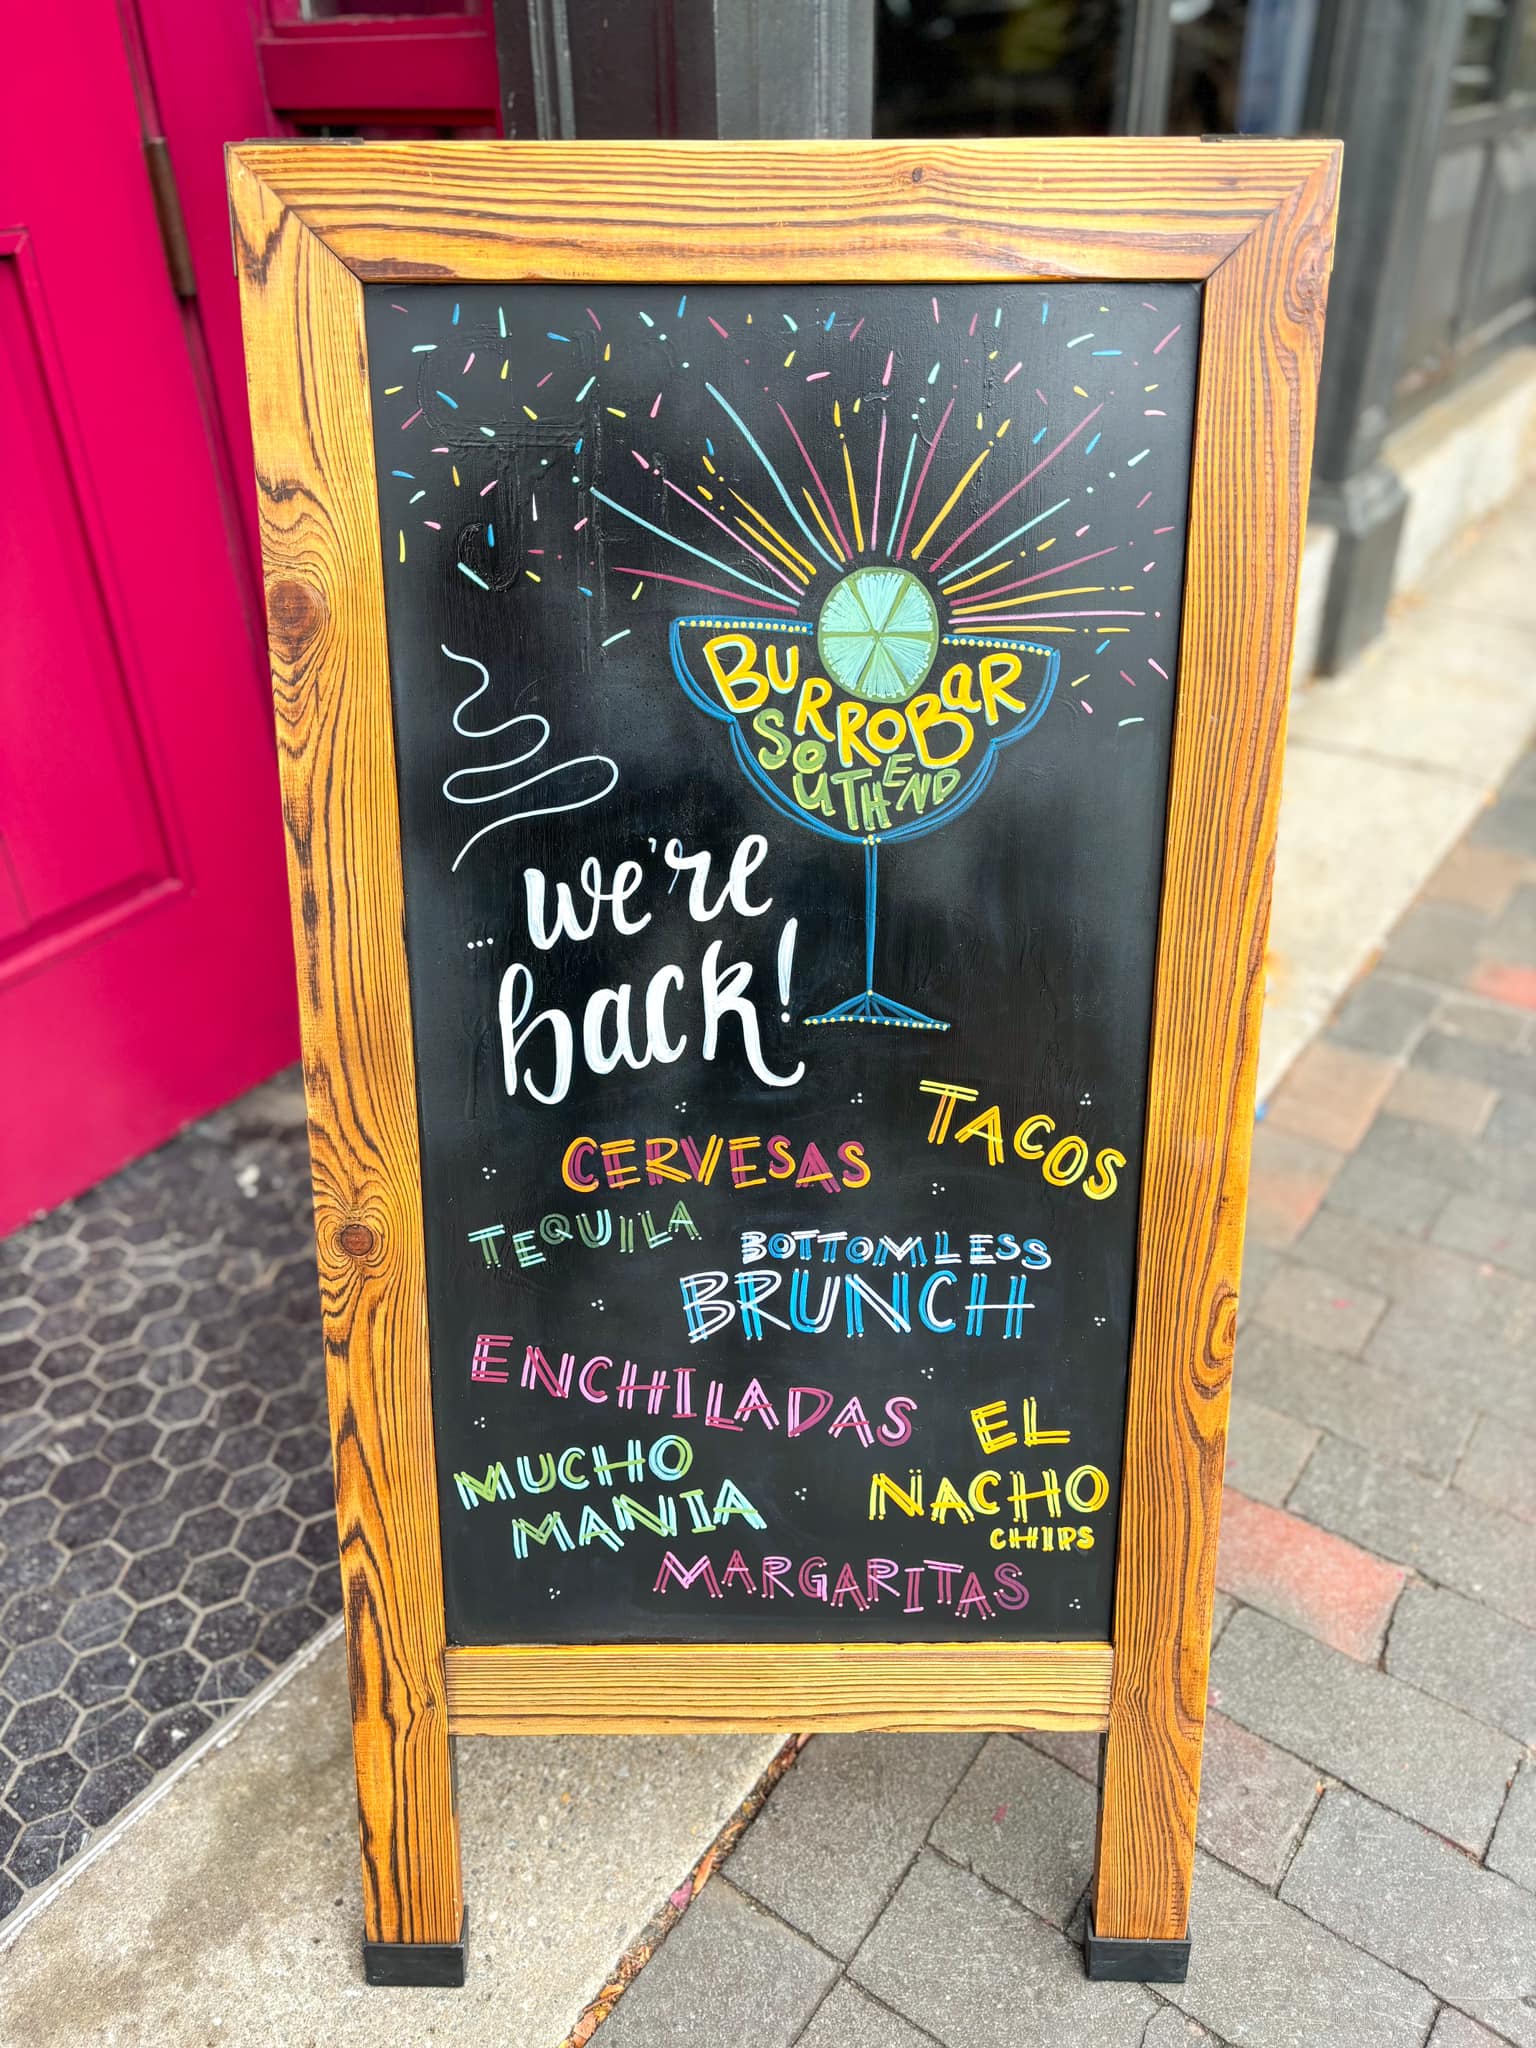 BURROBAR
SOUTH END
... we're
back!
TACOS
CERVESAS
TEQUILA
BOTTOMLESS
BRUNCH
ENCHILADAS
EL
NACHO
CHIIPS
MUCHO
MANIA
MARGARITAS